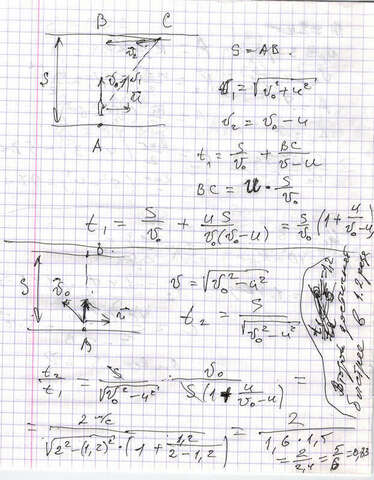 B C
S v⃗₂ S = AB.
v₀ v₁ u⃗ v₁ = √(v₀² + u²)
A v₂ = v₀ - u
t₁ = S/v₀ + BC/(v - u)
BC = u · S/v₀
t₁ = S/v₀ + uS/(v₀(v₀ - u)) = S/v₀ (1 + u/(v₀ - u))
S v⃗₀ u⃗ v = √(v₀² - u²)
t₂ = S/√(v₀² - u²)
t₂/t₁ = S/√(v₀² - u²) · v₀/(S(1 + u/(v₀ - u))) =
= 2 м/с/(√(2² - (1,2)²) · (1 + 1,2/(2 - 1,2))) = 2/(1,6 · 1,5)
= 2/2,4 = 5/6 = 0,83
Второй
быстрее в 1.2 раза